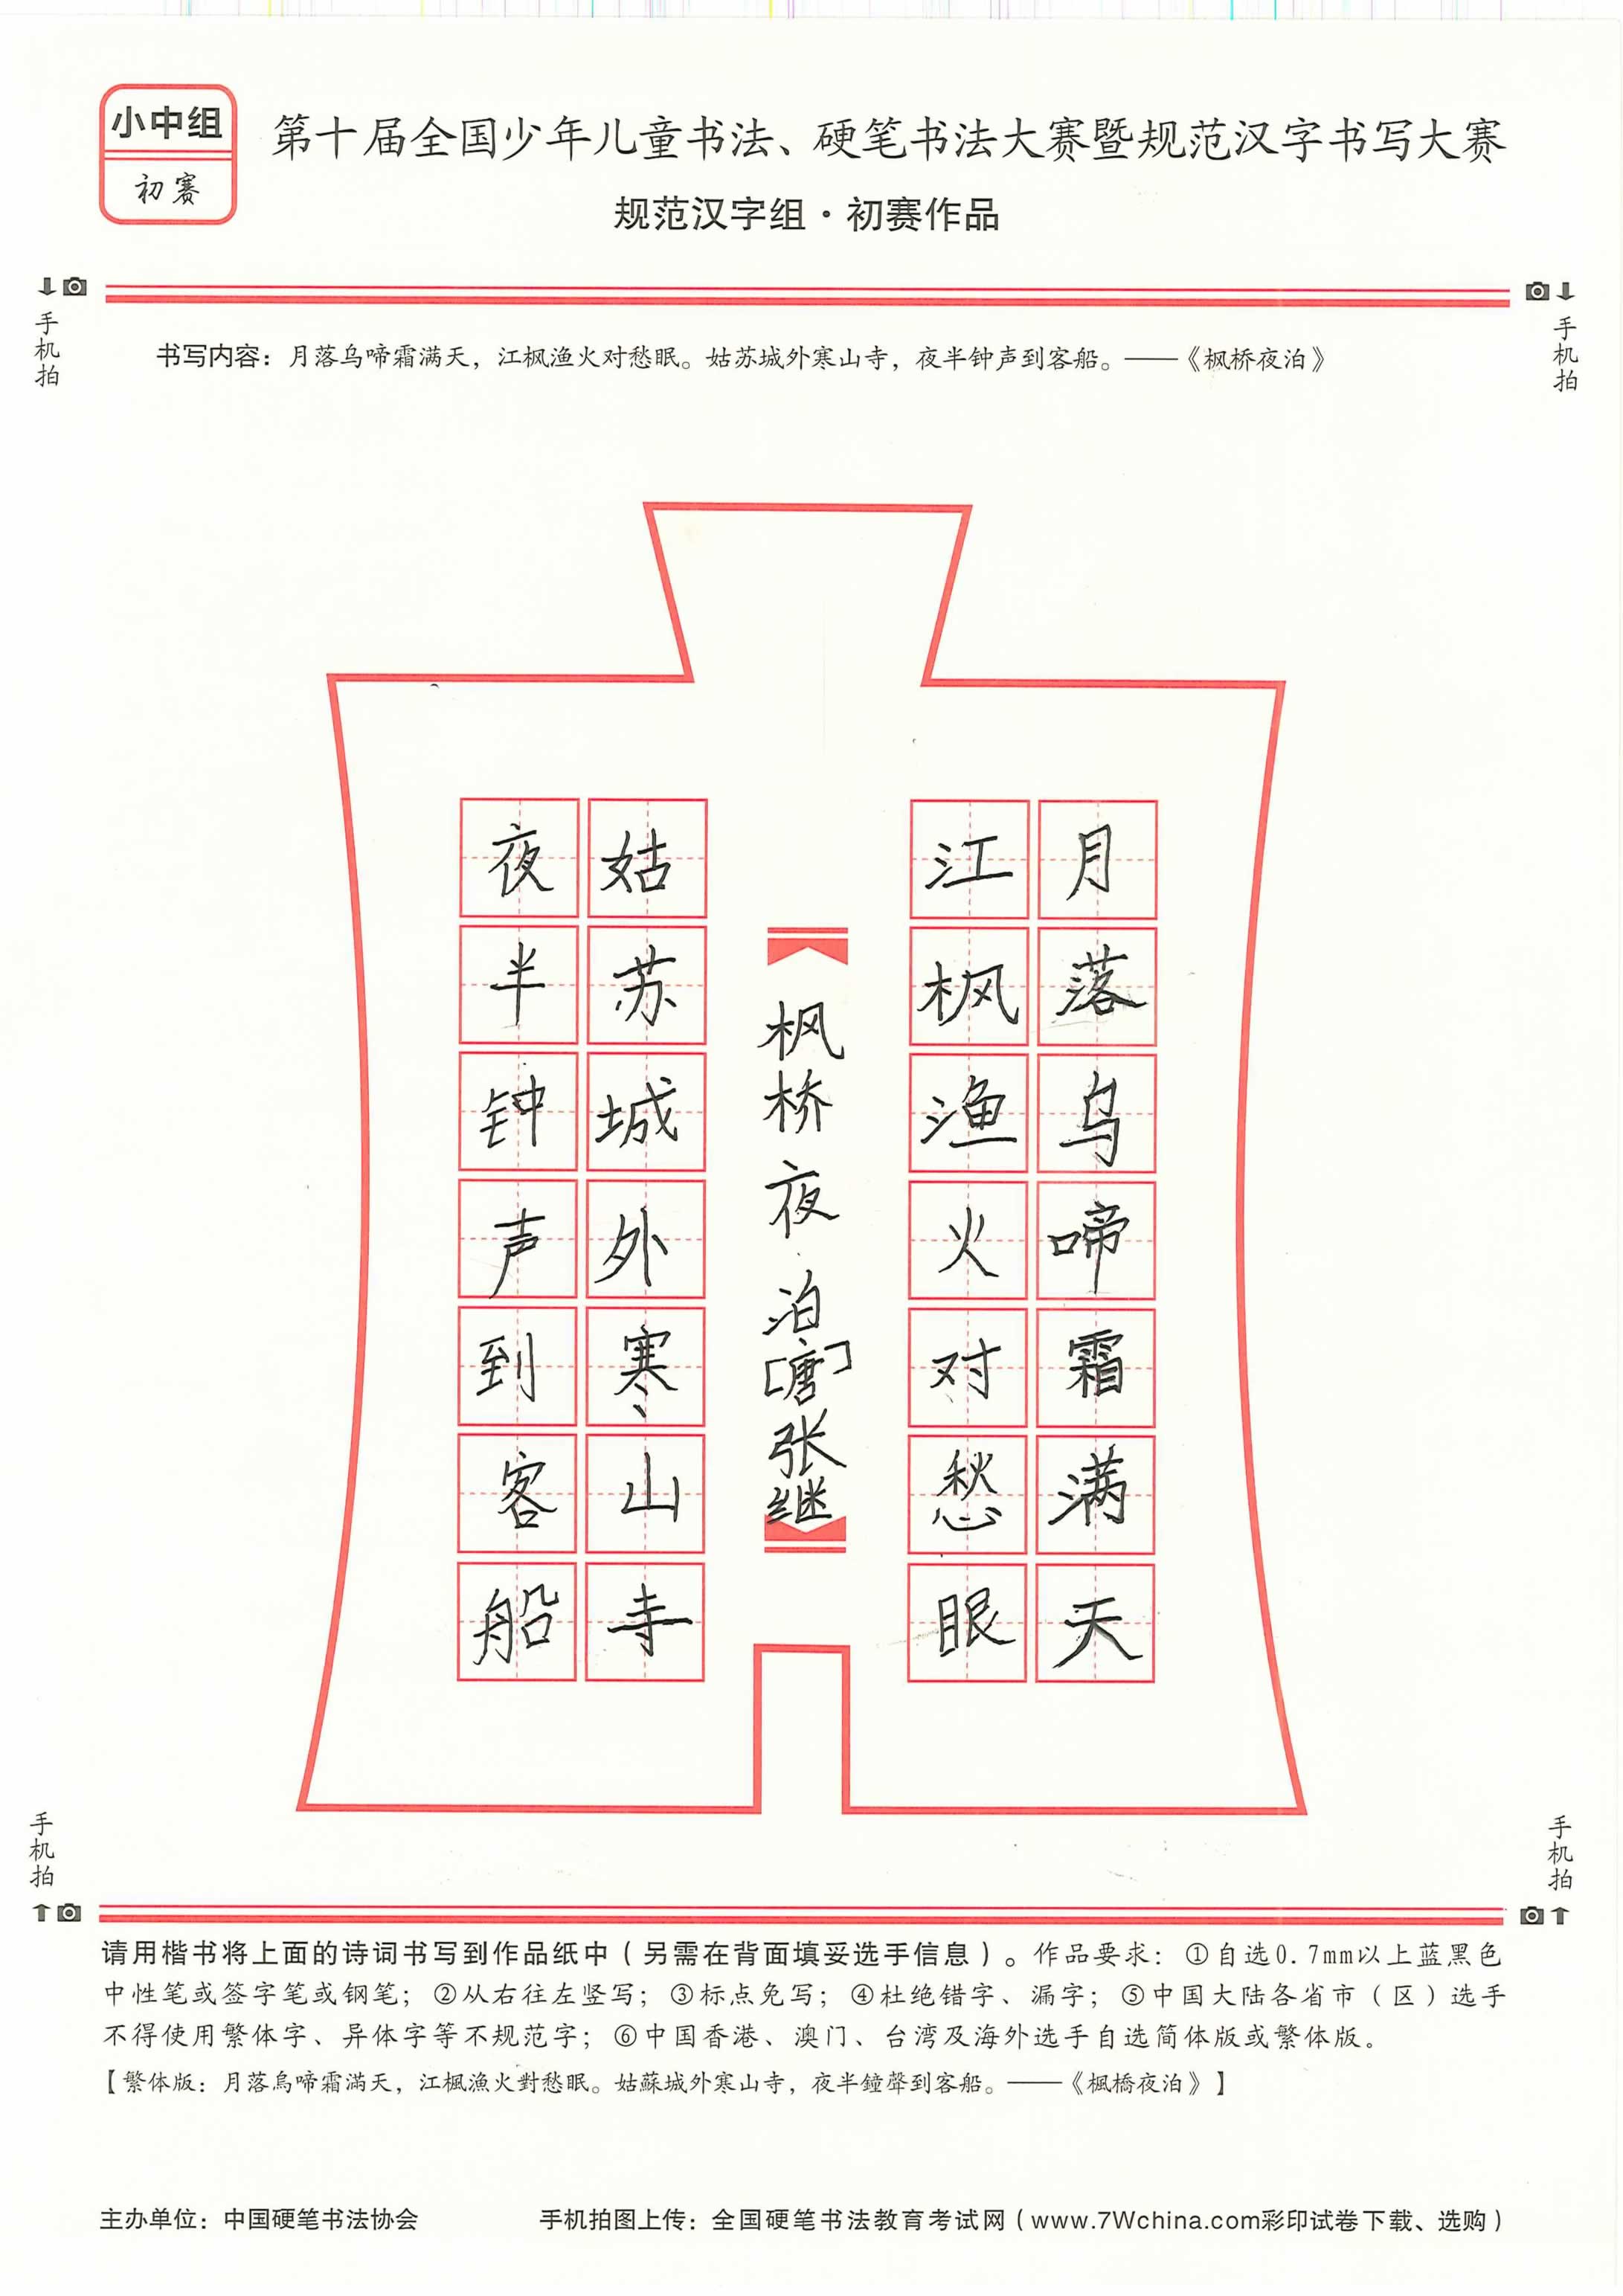 小中组
初赛
第十届全国少年儿童书法、硬笔书法大赛暨规范汉字书写大赛
规范汉字组·初赛作品
手机拍
手机拍
书写内容：月落乌啼霜满天，江枫渔火对愁眠。姑苏城外寒山寺，夜半钟声到客船。——《枫桥夜泊》
月落乌啼霜满天
江枫渔火对愁眼
枫桥夜泊[唐]张继
姑苏城外寒山寺
夜半钟声到客船
手机拍
手机拍
请用楷书将上面的诗词书写到作品纸中（另需在背面填妥选手信息）。作品要求：①自选0.7mm以上蓝黑色
中性笔或签字笔或钢笔；②从右往左竖写；③标点免写；④杜绝错字、漏字；⑤中国大陆各省市（区）选手
不得使用繁体字、异体字等不规范字；⑥中国香港、澳门、台湾及海外选手自选简体版或繁体版。
【繁体版：月落烏啼霜滿天，江楓漁火對愁眠。姑蘇城外寒山寺，夜半鐘聲到客船。——《楓橋夜泊》】
主办单位：中国硬笔书法协会
手机拍图上传：全国硬笔书法教育考试网（www.7Wchina.com彩印试卷下载、选购）